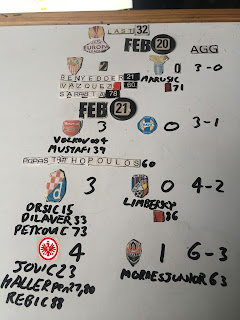 LAST 32
UEFA
EUROPA
LEAGUE
FEB 20 AGG
2 0 3-0
BENYEDDER 21 MARUSIC
VAZQUEZ 60 71
SARABIA 78
FEB 21
3 0 3-1
VOLKOV 004
MUSTAFI 39
PAPASTATHOPOULOS 60
3 0 4-2
ORSIC 15 LIMBERSKY
DILAVER 33 86
PETKOVIC 73
4 1 6-3
JOVIC 23 MORAES JUNIOR 63
HALLER PEN 27,80
REBIC 88